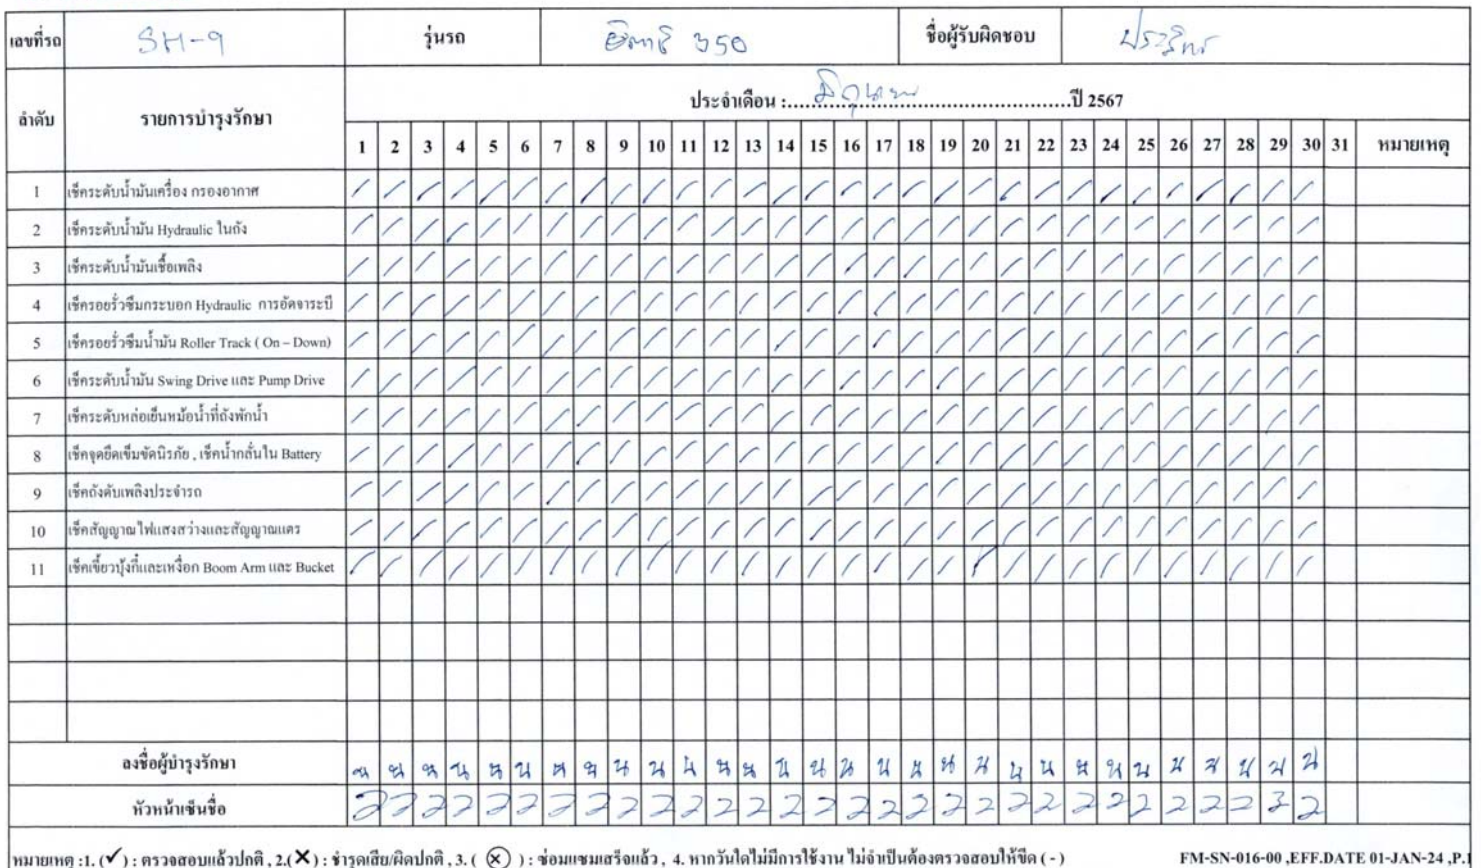 เลขที่รถ SH-9 รุ่นรถ 350 ชื่อผู้รับผิดชอบ
ลำดับ รายการบำรุงรักษา ประจำเดือน :.....มิถุนายน.....ปี 2567
1 2 3 4 5 6 7 8 9 10 11 12 13 14 15 16 17 18 19 20 21 22 23 24 25 26 27 28 29 30 31 หมายเหตุ
1 เช็คระดับน้ำมันเครื่อง กรองอากาศ
2 เช็คระดับน้ำมัน Hydraulic ในถัง
3 เช็คระดับน้ำมันเชื้อเพลิง
4 เช็ครอยรั่วซึมกระบอก Hydraulic การอัดจาระบี
5 เช็ครอยรั่วซึมน้ำมัน Roller Track ( On – Down)
6 เช็คระดับน้ำมัน Swing Drive และ Pump Drive
7 เช็คระดับหล่อเย็นหม้อน้ำที่ถังพักน้ำ
8 เช็คจุดยึดเข็มขัดนิรภัย , เช็คน้ำกลั่นใน Battery
9 เช็คถังดับเพลิงประจำรถ
10 เช็คสัญญาณไฟแสงสว่างและสัญญาณแตร
11 เช็คเขี้ยวบุ้งกี๋และเหงือก Boom Arm และ Bucket
ลงชื่อผู้บำรุงรักษา
หัวหน้าเซ็นชื่อ
หมายเหตุ :1. (✓) : ตรวจสอบแล้วปกติ , 2.(✕) : ชำรุดเสีย/ผิดปกติ , 3. ( ⓧ ) : ซ่อมแซมเสร็จแล้ว , 4. หากวันใดไม่มีการใช้งาน ไม่จำเป็นต้องตรวจสอบให้ขีด ( - ) FM-SN-016-00 ,EFF.DATE 01-JAN-24 ,P.1